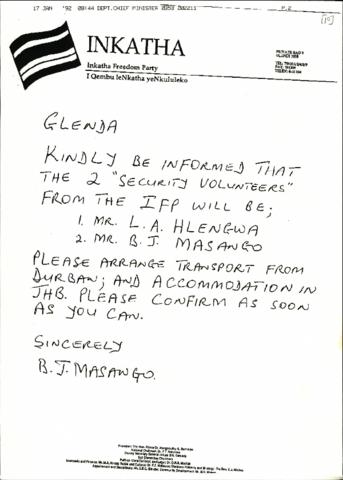 17 JAN '92 09:44 DEPT.CHIEF MINISTER
P.2
INKATHA
Inkatha Freedom Party
I Qembu leNkatha yeNkululeko
PRIVATE BAG
GLENDA
KINDLY BE INFORMED THAT
THE 2 "SECURITY VOLUNTEERS"
FROM THE IFP WILL BE;
1. MR. L. A. HLENGWA
2. MR. B. J. MASANGO
PLEASE ARRANGE TRANSPORT FROM
DURBAN; AND ACCOMMODATION IN
JHB. PLEASE CONFIRM AS SOON
AS YOU CAN.
SINCERELY
B. J. MASANGO.